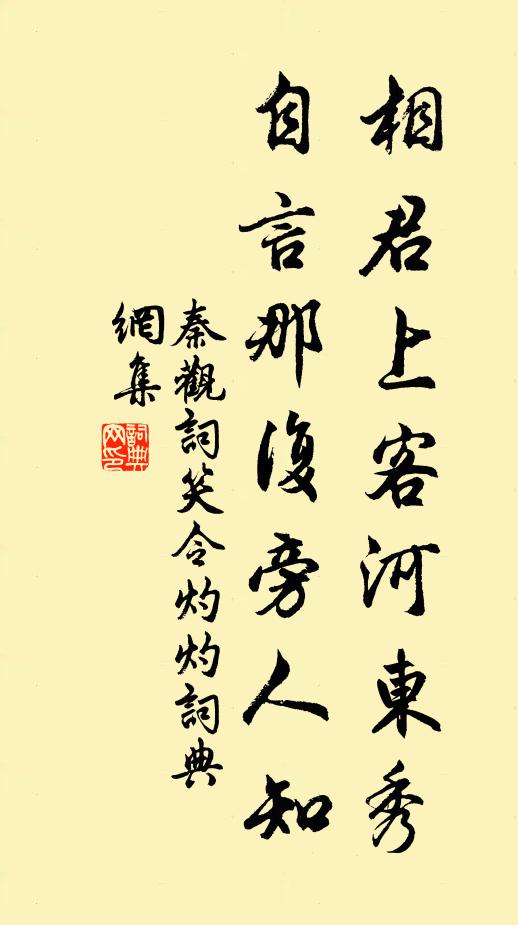 相君上客河東秀
自言那復旁人知
秦觀詞笑令灼灼詞典
網集
詞典網印